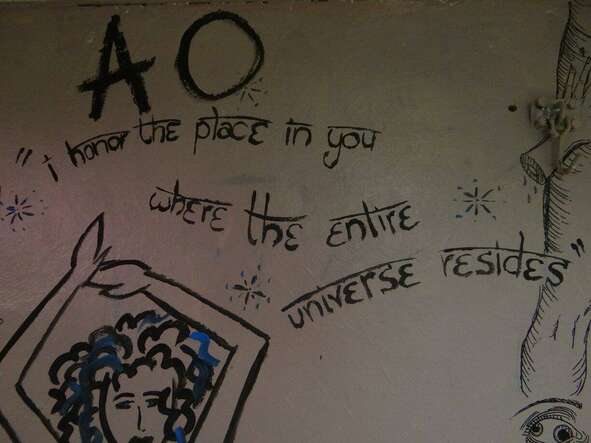 AO
"i honor the place in you
where the entire
universe resides"